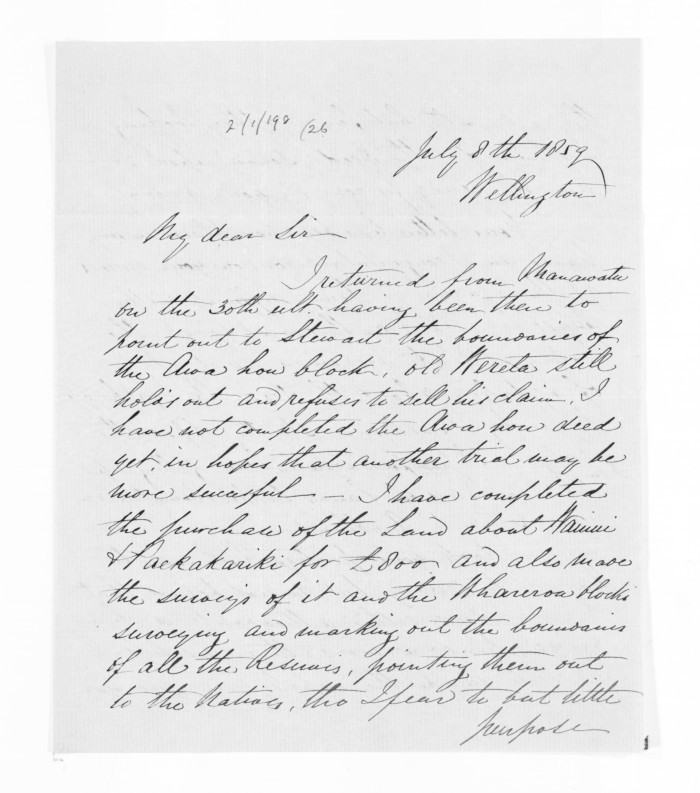 2/1/198 /26
July 8th 1859
Wellington
My dear Sir
I returned from Manawatu
on the 30th ult. having been then to
point out to Stewart the boundaries of
the Awa hou block, old Wereta still
holds out and refuses to sell his claim. I
have not completed the Awa hou deed
yet, in hopes that another trial may be
more sucessful — I have completed
the purchase of the Land about Wainui
& Paekakariki for £800 and also made
the surveys of it and the Whareroa blocks
surveying and marking out the boundaries
of all the Reserves, pointing them out
to the Natives, tho I fear to but little
purpose